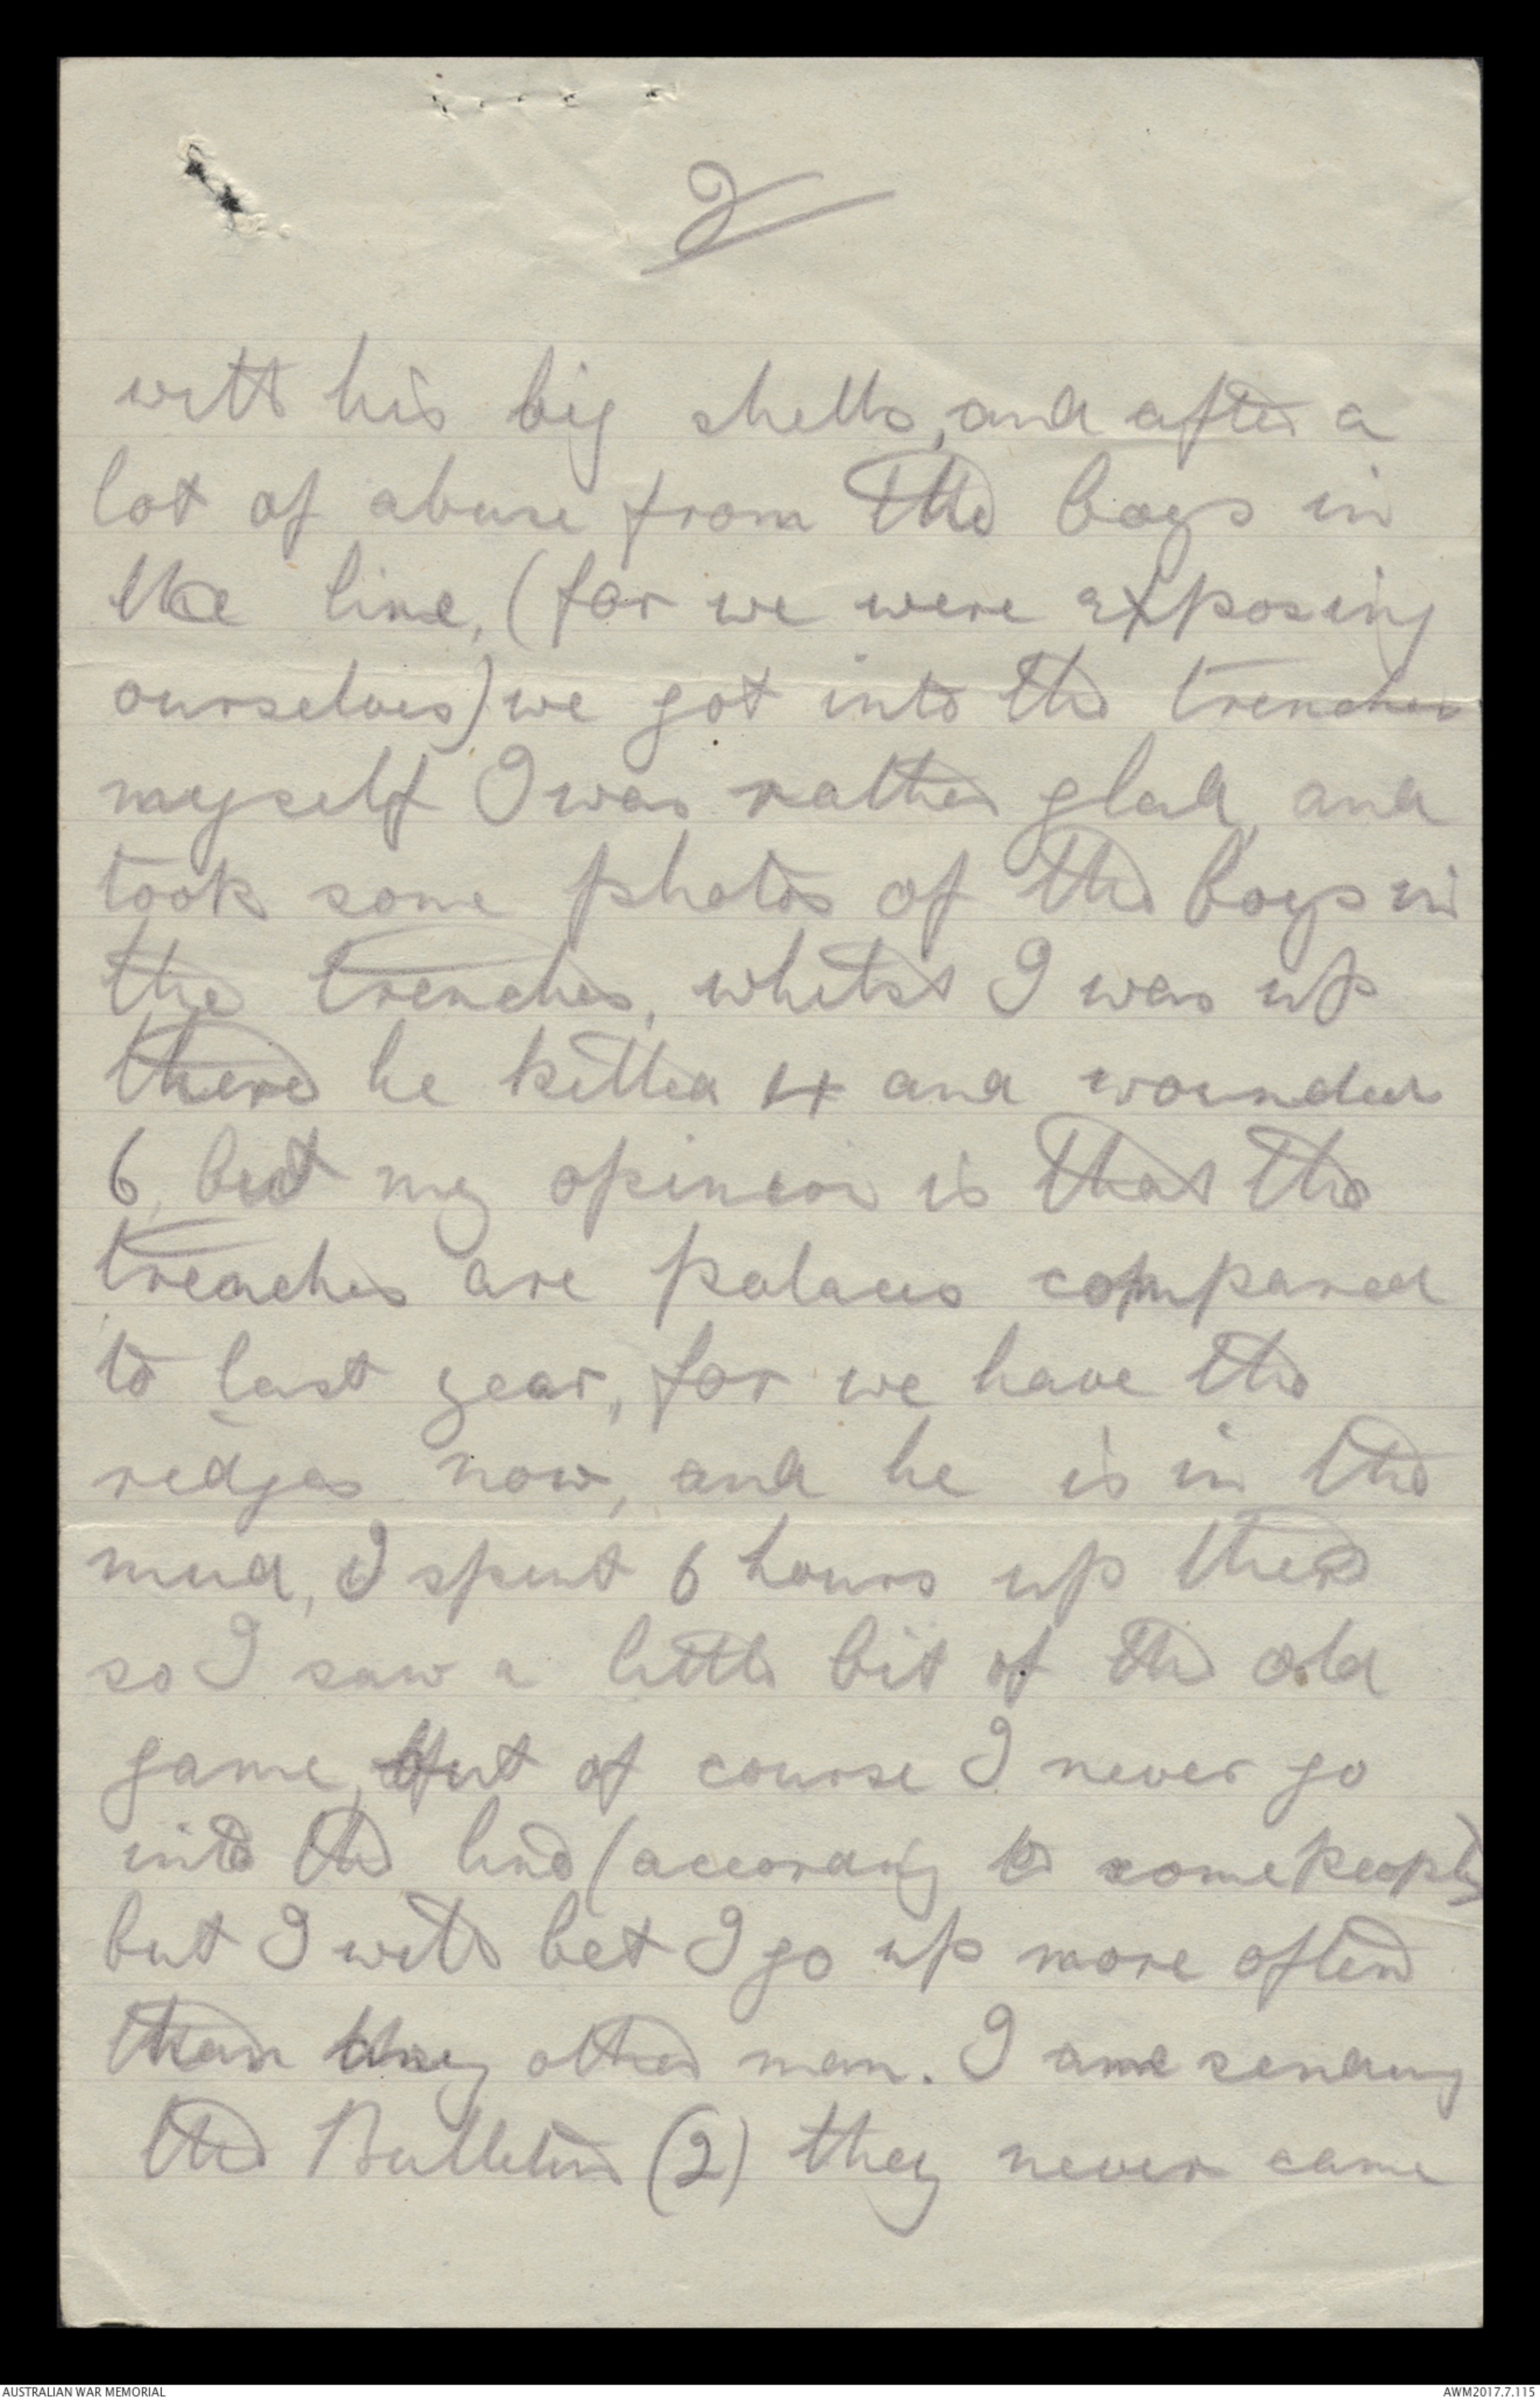 2
with his big shells, and after a
lot of abuse from the boys in
the line, (for we were exposing
ourselves) we got into the trenches
myself I was rather glad, and
took some photos of the boys in
the trenches, whilst I was up
there he killed 4 and wounded
6, but my opinion is that the
trenches are palaces compared
to last year, for we have the
redges now, and he is in the
mud, I spent 6 hours up there
so I saw a little bit of the old
game, but of course I never go
into the line (according to some people)
but I will bet I go up more often
than any other man. I am sending
the Bulletins (2) they never came
AUSTRALIAN WAR MEMORIAL
AWM2017.7.115